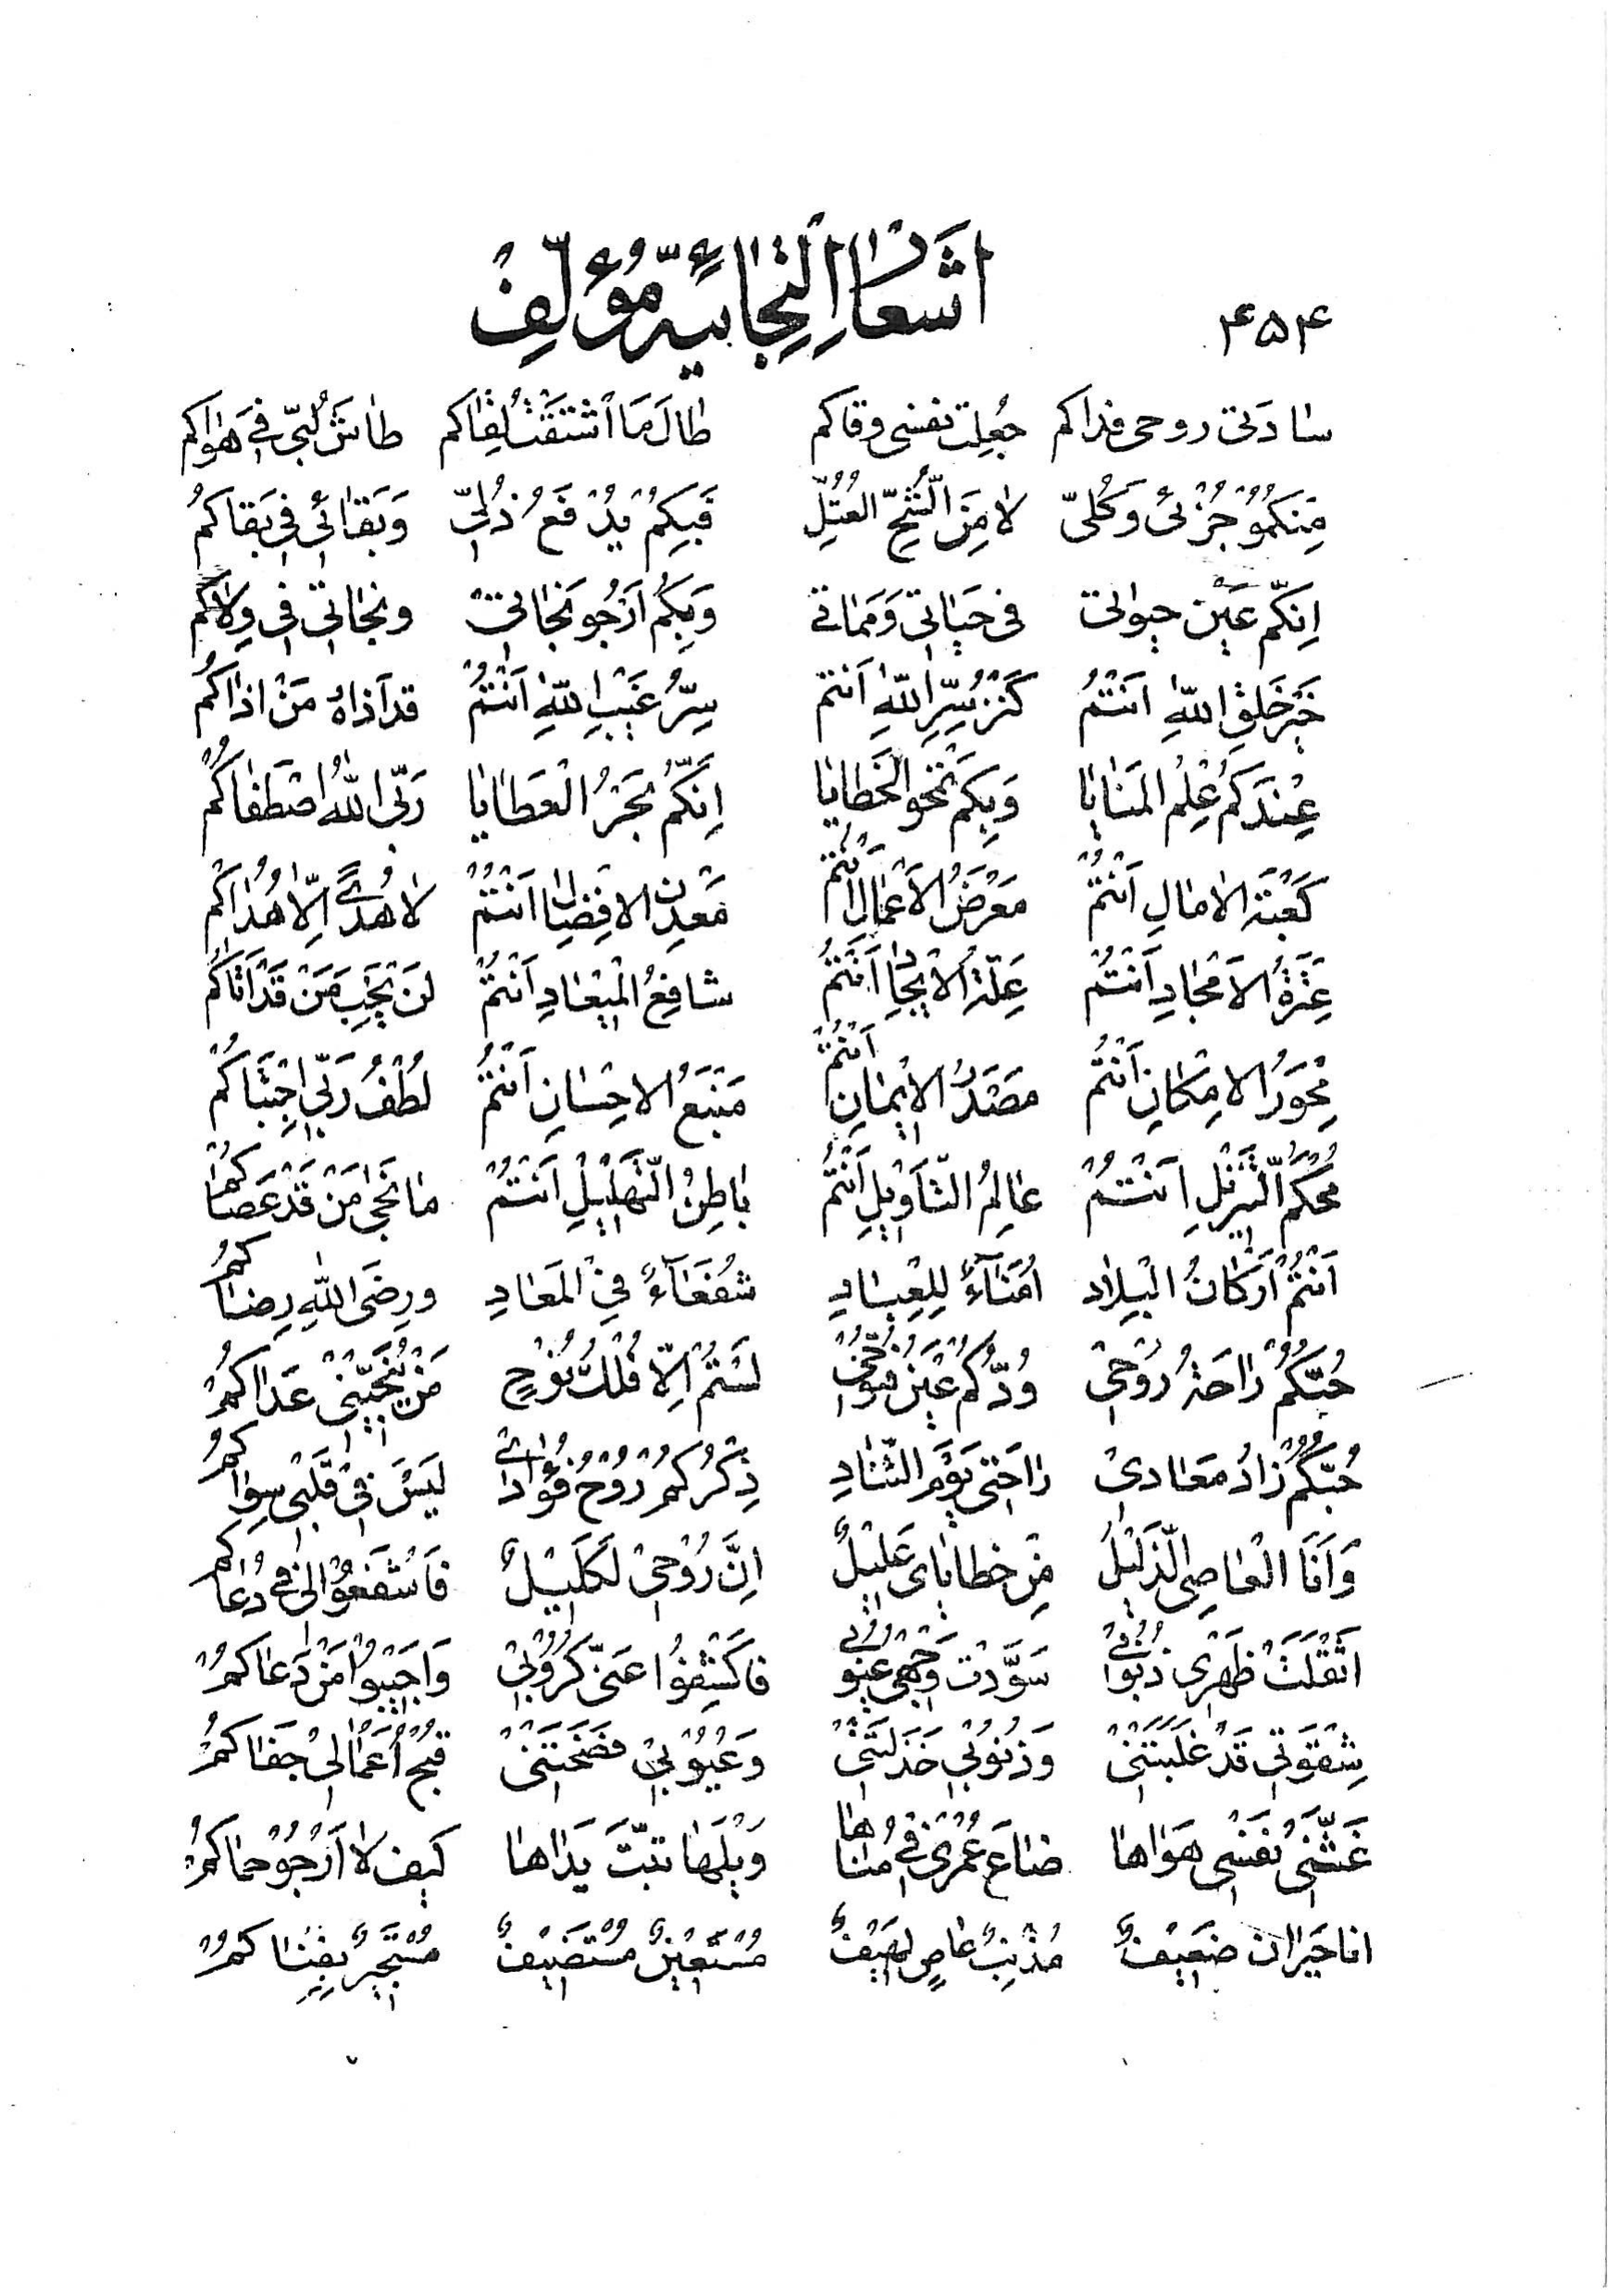 ۴۵۴
اَشْعارُ اِلْتِجائِیَّهٔ مُؤَلِّفْ
سادَتی روحی فداکم جُعِلت نفسی وقاکم طالَ مَا اشْتَقْتُ لِقاکم طاشَ لُبّی فی هَواکم
مِنْکُمُوُ جُزْئی وَکُلّی لا مِنَ الشُّحِّ العُتُلِّ فَبِکُمْ یُدْفَعُ ذُلّی وَبَقائی فی بَقاکُمُ
اِنّکُم عَیْن حیواتی فی حَیاتی وَمَماتی وَبِکُم اَرْجُو نَجاتیْ ونجاتی فی وِلاکُم
خَیْرُ خَلْقِ اللّٰهِ اَنْتُمُ کَنْزُ سِرِّ اللّٰهِ اَنتم سِرُّ غَیْبِ اللّٰهِ اَنْتُمُ قد اَذاهُ مَنْ اذاکُمُ
عِنْدَکُمْ عِلْمُ المَنایا وَبِکم تَمْحو الخَطایا اِنَّکُمْ بَحْرُ الْعَطایا رَبّی اللّٰهُ اصْطَفاکُمُ
کَعْبَةُ الامالِ اَنْتُمُ مَعْرَضُ الاَعْمالِ اَنْتُمُ مَعْدِن الافِضالِ اَنْتُمُ لا هُدیً اِلّا هُداکُم
عِتْرَةُ الاَمْجادِ اَنْتُمْ عِلّةُ الاْیجادِ اَنْتُمُ شافِعُ الْمیعادِ اَنْتُمْ لَنْ یَخِبْ مَنْ قَدْ اَتاکُمُ
مِحْوَرُ الامِکانِ اَنْتُم مَصْدَرُ الایْمانِ اَنْتُمْ مَنْبَعُ الاحِسْانِ اَنْتُمُ لُطْفُ رَبّی اجْتَباکُمُ
مُحْکَمُ التّنْزیلِ اَنْتُمْ عالِمُ التّاَویلِ اَنْتُم باطِنُ التّهْلیلِ اَنْتُمْ ما نَجیٰ مَنْ قَدْ عَصاکُمُ
اَنْتُمْ اَرْکانُ الْبِلاد اُمَناءٌ لِلِعِبادِ شُفَعَاءٌ فِی الْمَعادِ ورِضَی اللّٰهِ رِضاکُمُ
حُبّکُمُ راحَةُ رُوْحیْ وُدُّکُمْ عَیْنُ فُتُوْحیْ لَسْتُمْ اِلّا فُلْكُ نُوْحٍ مَنْ یُنَجّیْنیْ عَداکُمُ
حُبّکُمْ زادُ مَعادیْ راحَتی یَوْمَ التّنادِ ذِکْرُکُمْ رُوْحُ فُؤادیْ لَیْسَ فی قَلْبی سِواکُمُ
وَاَنَا الْعاصِی الذّلیْلُ مِنْ خطایای عَلیْلٌ اِنَّ رُوْحیْ لَکَلیْلٌ فَاشْفَعُوْا لیْ فی دُعاکُم
اَثْقَلَتْ ظَهْری ذُنُوبیْ سَوَّدَتْ وَجْهی عُیُوبیْ فاکْشِفُوا عَنّی کُرُوْبیْ وَاجیْبُوْا مَنْ دَعاکُمُ
شِقْوَتی قَدْ غَلَبَتْنیْ وَذنُوْبی خَذَلَتْنیْ وَعُیُوْبیْ فَضَحَتْنیْ قُبْحُ اَعْمالیْ جَفاکُمُ
غَشّنی نَفْسی هَواها ضاعَ عُمْریْ فی مُناها وَیْلَها تبّتْ یَداها کَیف لا اَرْجُوْ حماکُمُ
انا حَیْران ضَعیْفٌ مُذْنِبٌ عاصٍ لَهیْفٌ مُسْتَعیْنٌ مُسْتَضیْفٌ مُسْتَجیْرٌ بِفِناکُمُ